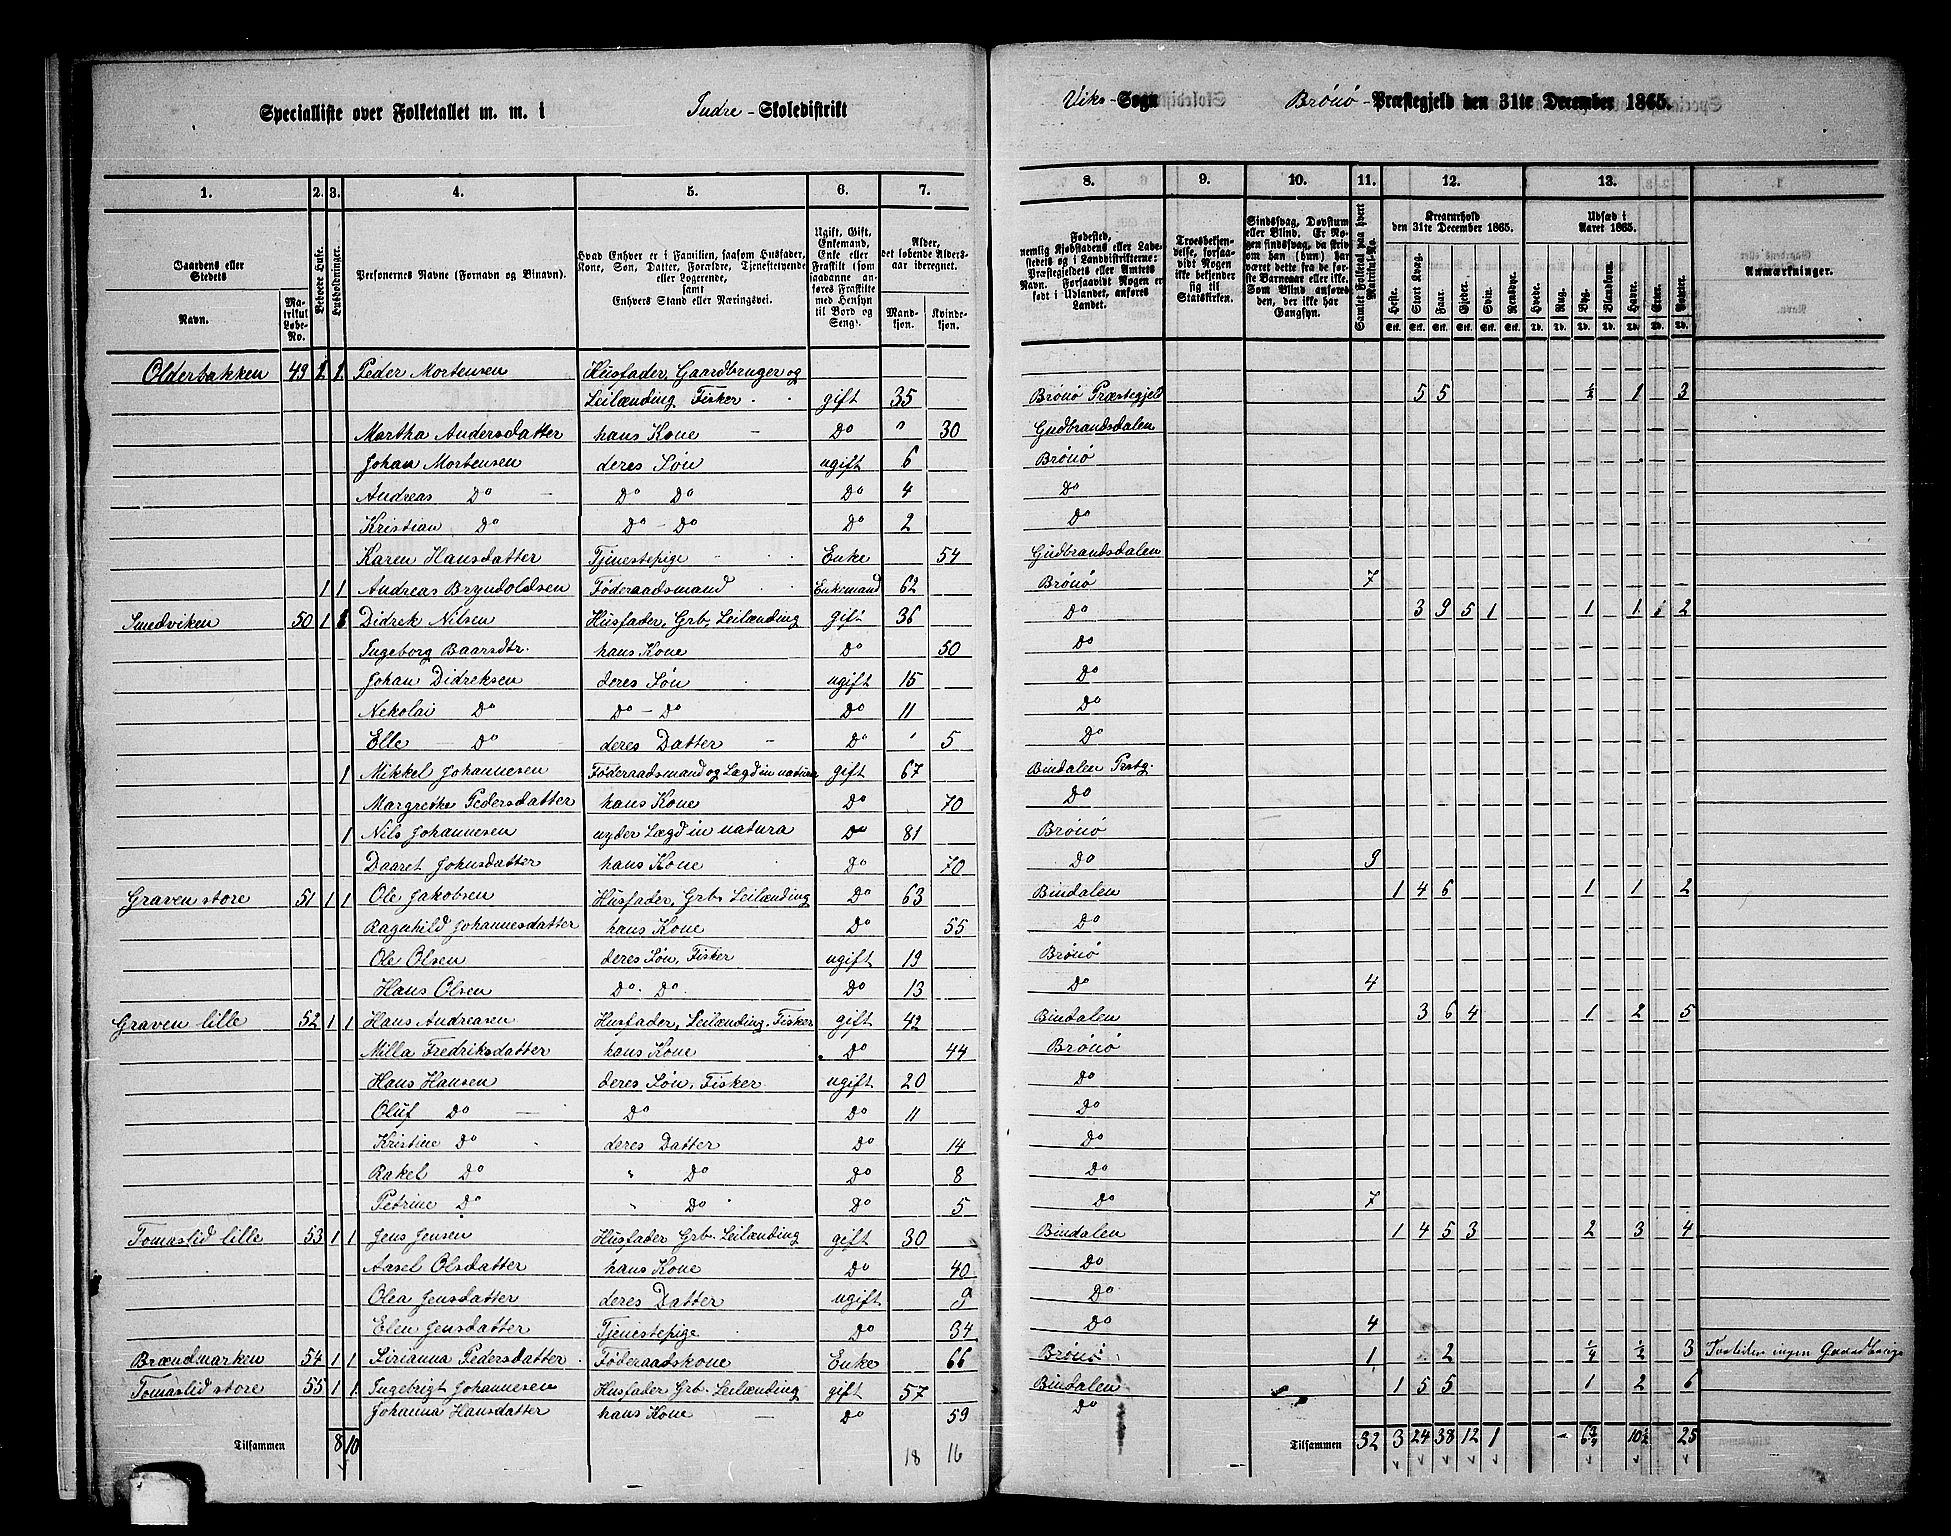 Specialliste over Folketallet m. m. i Indre - Skoledistrikt Viks - Sogn Brönö - Præstegjeld den 31te December 1865.
1. 2. 3. 4. 5. 6. 7. 8. 9. 10. 11. 12. 13. 1.
Gaardens eller Stedets
Navn.
Matrikul Løbe-No.
Beboede Huse.
Husholdninger.
Personernes Navne (Fornavn og Binavn).
Hvad Enhver er i Familien, saasom Husfader, Kone, Søn, Datter, Forældre, Tjenestetyende eller Logerende, samt Enhvers Stand eller Næringsvei.
Ugift, Gift, Enkemand, Enke eller Fraskilt (som saadanne anføres Fraskilte med Hensyn til Bord og Seng).
Alder, det løbende Alders-aar iberegnet.
Mandkjøn. Kvindekjøn.
Fødested, nemlig Kjøbstadens eller Ladestedets og i Landdistrikterne: Præstegjeldets eller Amtets Navn. Forsaavidt Nogen er født i Udlandet, anføres Landet.
Troesbekjendelse, forsaavidt Nogen ikke bekjender sig til Statskirken.
Sindssvag, Døvstum eller Blind. Er Nogen sindssvag, da skrives om han (hun) har været dette fra de første Barneaar eller ikke. Som Blind anføres den, der ikke har Gangsyn.
Samlet Folketal paa hvert Matrikul-No.
Kreaturhold den 31te December 1865.
Heste. Stort Kvæg. Faar. Gjeder. Svin. Rensdyr.
Udsæd i Aaret 1865.
Hvede. Rug. Byg. Blandkorn. Havre. Erter. Poteter.
Anmærkninger.
Olderbakken 49 1 1 Peder Mortensen Husfader, Gaardbruger og
Leilænding Fisker gift 35 Brönö Præstegjeld 5 5 ½ 1 3
Martha Andersdatter hans Kone Do " 30 Gudbrandsdalen
Johan Mortensen deres Søn ugift 6 Brönö
Andreas Do Do Do Do 4 Do
Kristian Do Do - Do Do 2 Do
Karen Hansdatter Tjenestepige Enke 54 Gudbrandsdalen
1 1 Andreas Bryndoldsen Føderaadsmand Enkemand 62 Brönö 7
Smedviken 50 1 1 Didrek Nilsen Husfader, Grb. Leilænding gift 36 Do 3 9 5 1 1 1 1 2
Ingeborg Baarsdtr. hans Kone Do 50 Do
Johan Didreksen deres Søn ugift 15 Do
Nekolai Do Do - Do Do 11 Do
Elle Do deres Datter Do 5 Do
1 Mikkel Johannesen Føderaadsmand og Lægd in natura gift 67 Bindalen Prstg.
Margrethe Pedersdatter hans Kone Do 70 Do
1 Nils Johannesen nyder Lægd in natura Do 81 Brönö
Daaret Johnsdatter hans Kone Do 70 Do 9
Graven store 51 1 1 Ole Jakobsen Husfader, Grb. Leilænding Do 63 Bindalen 1 4 6 1 1 2
Ragnhild Johannesdatter hans Kone Do 55 Do
Ole Olsen deres Søn, Fisker ugift 19 Brönö
Hans Olsen Do. Do. Do 13 Do 4
Graven lille 52 1 1 Hans Andreasen Husfader, Leilænding. Fisker gift 42 Bindalen 3 6 4 1 2 5
Milla Fredriksdatter hans Kone Do 44 Brönö
Hans Hansen deres Søn, Fisker ugift 20 Do
Oluf Do Do Do 11 Do
Kristine Do deres Datter Do 14 Do
Rakel Do " Do Do 8 Do
Petrine Do " Do Do 5 Do 7
Tomaslid lille 53 1 1 Jens Jensen Husfader Grb. Leilænding gift 30 Bindalen 1 4 5 3 2 3 4
Aasel Olsdatter hans Kone Do 40 Do
Olea Jensdatter deres Datter ugift 9 Do
Elen Jensdatter Tjenestepige Do 34 Do 4
Brændmarken 54 1 1 Sirianna Pedersdatter Føderaadskone Enke 66 Brönö 1 2 ¼ ½ 3 ingen
Tomaslid store 55 1 1 Ingebrigt Johannesen Husfader Grb. Leilænding gift 57 Bindalen 1 5 5 1 2 6
Johanna Hansdatter hans Kone Do 59 Do
Tilsammen 8 10 18 16 Tilsammen 32 3 24 38 12 1 6¾ 10½ 25